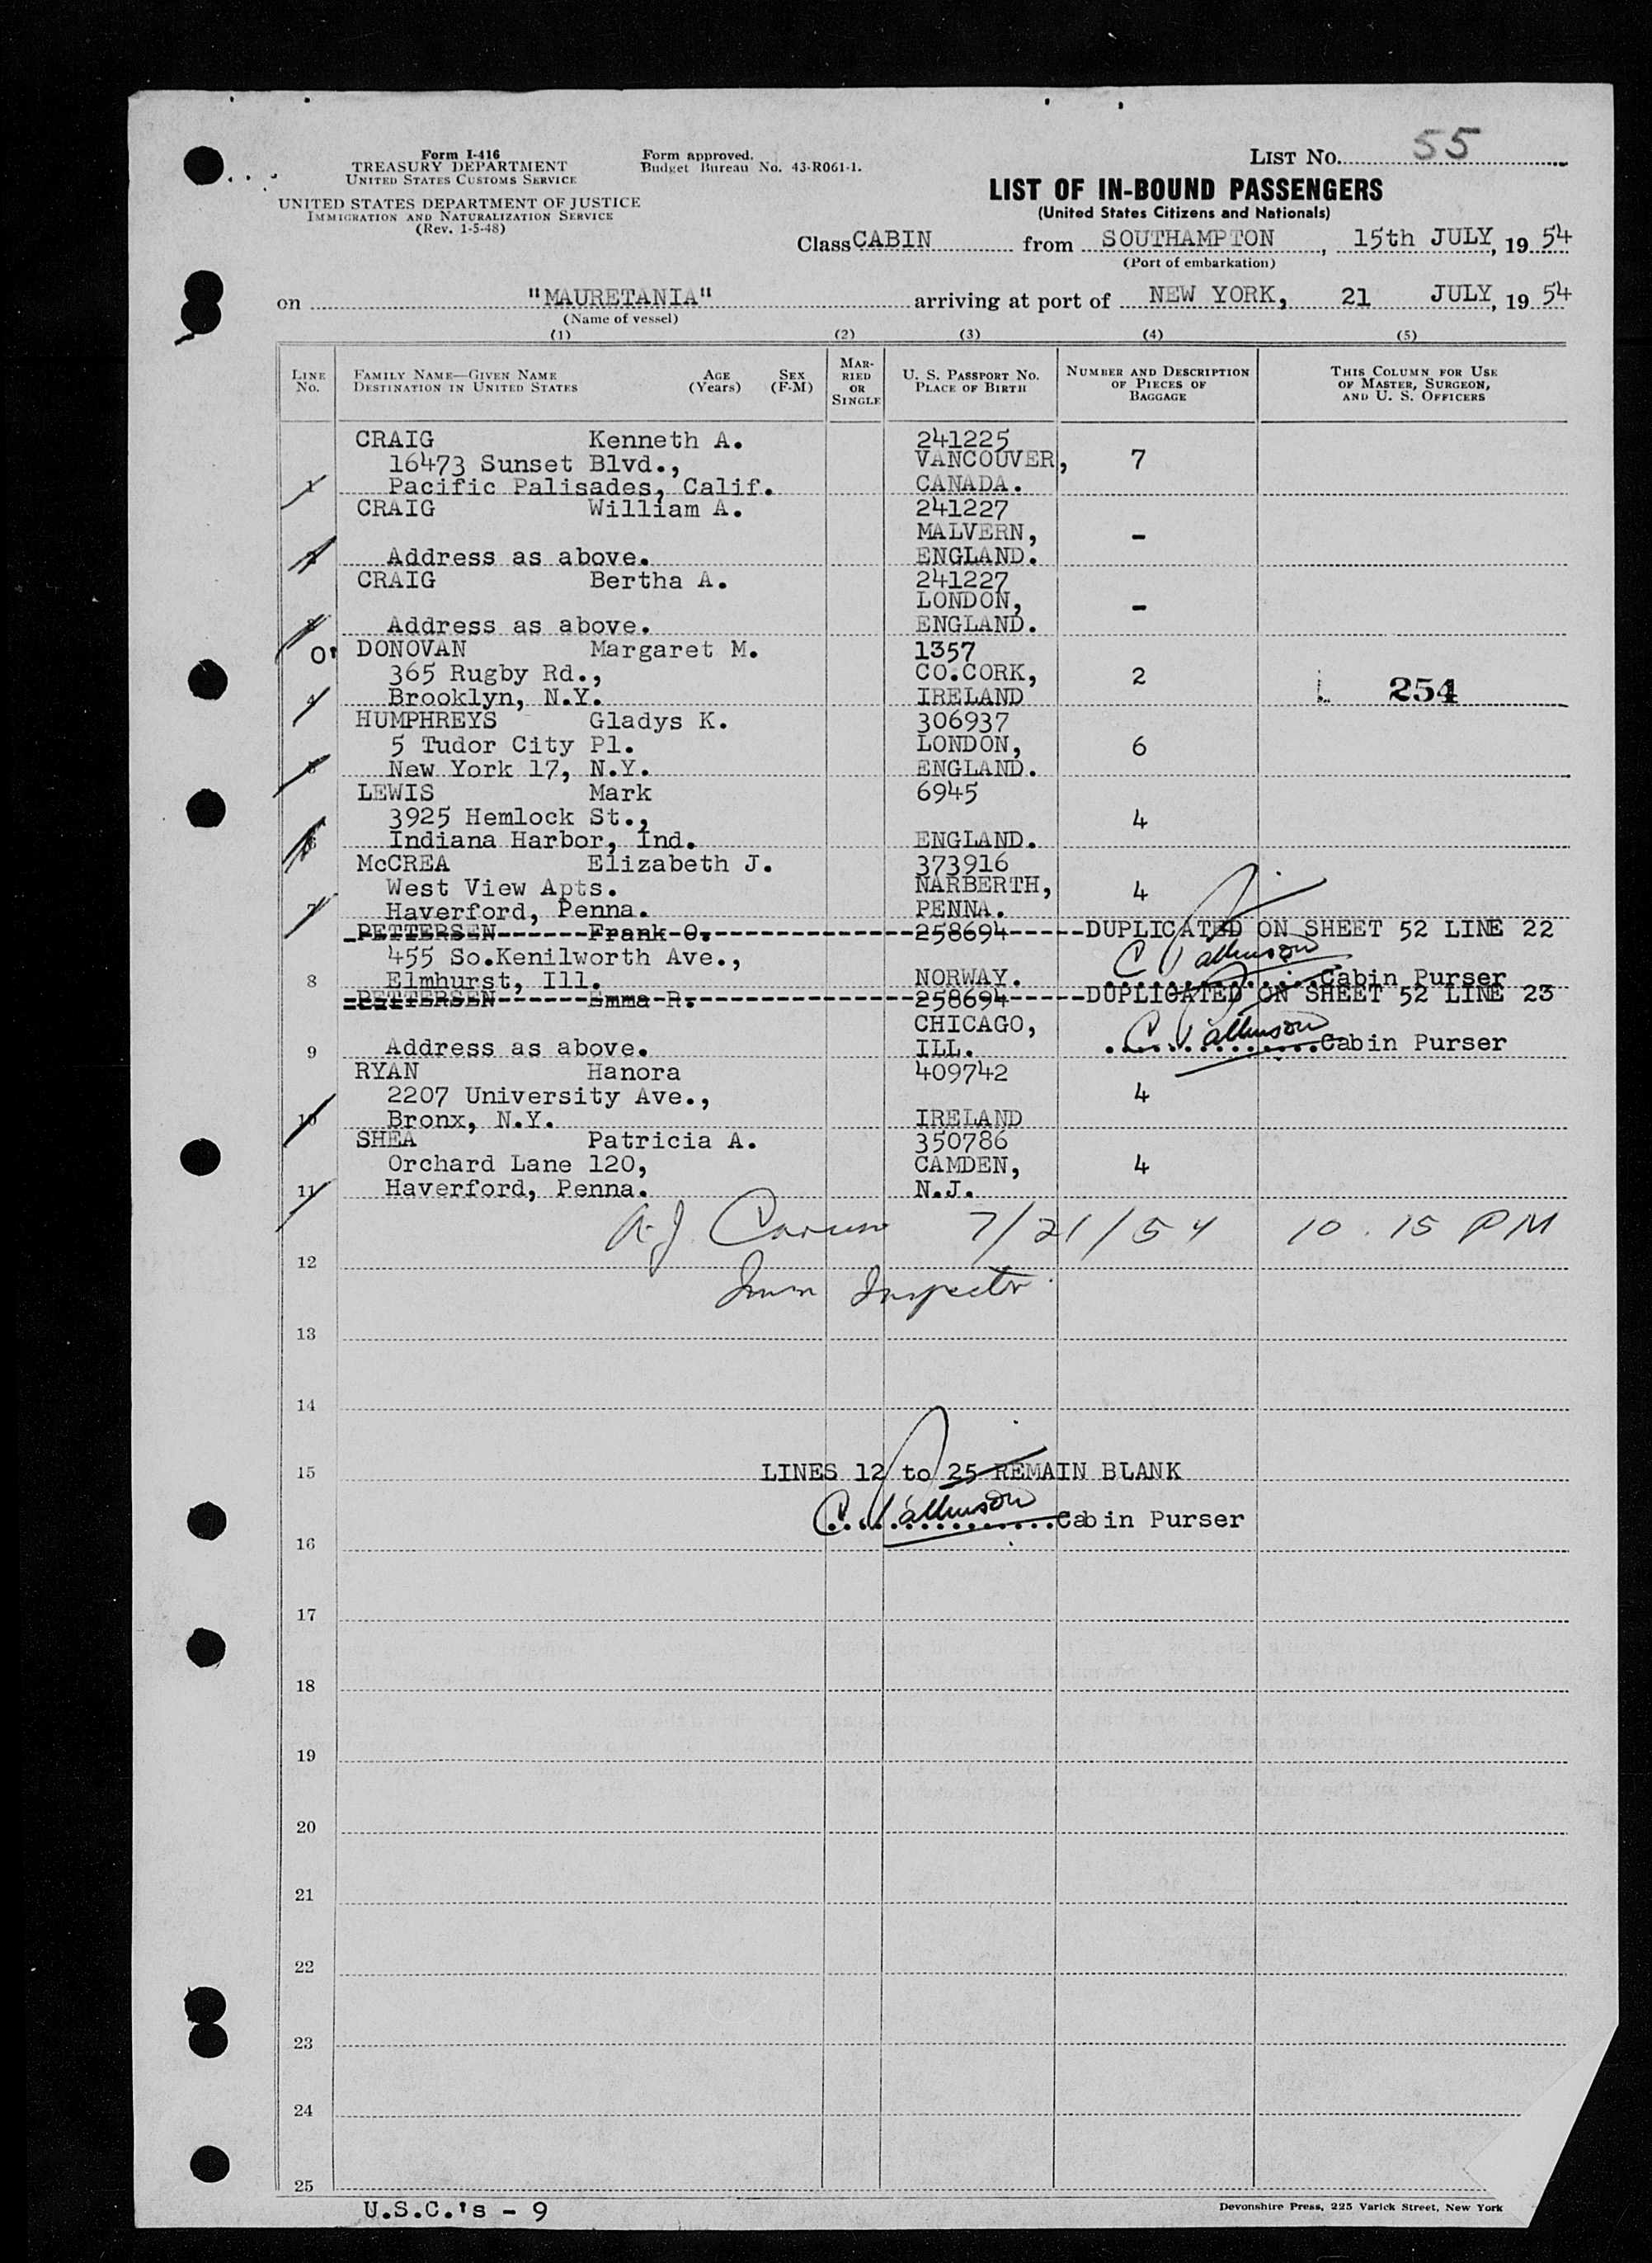 Form I-416
TREASURY DEPARTMENT
UNITED STATES CUSTOMS SERVICE
UNITED STATES DEPARTMENT OF JUSTICE
IMMIGRATION AND NATURALIZATION SERVICE
(Rev. 1-5-48)
Form approved.
Budget Bureau No. 43-R061-1.
LIST NO. 55
LIST OF IN-BOUND PASSENGERS
(United States Citizens and Nationals)
Class CABIN from SOUTHAMPTON, 15th JULY, 1954
(Port of embarkation)
on "MAURETANIA" arriving at port of NEW YORK, 21 JULY, 1954
(Name of vessel)
(1) (2) (3) (4) (5)
LINE NO. FAMILY NAME—GIVEN NAME DESTINATION IN UNITED STATES AGE (Years) SEX (F-M) MARRIED OR SINGLE U. S. PASSPORT NO. PLACE OF BIRTH NUMBER AND DESCRIPTION OF PIECES OF BAGGAGE THIS COLUMN FOR USE OF MASTER, SURGEON, AND U. S. OFFICERS
CRAIG Kenneth A. 241225
16473 Sunset Blvd., VANCOUVER, 7
1 Pacific Palisades, Calif. CANADA.
CRAIG William A. 241227
MALVERN, -
2 Address as above. ENGLAND.
CRAIG Bertha A. 241227
LONDON, -
3 Address as above. ENGLAND.
O' DONOVAN Margaret M. 1357
365 Rugby Rd., CO.CORK, 2
4 Brooklyn, N.Y. IRELAND 254
HUMPHREYS Gladys K. 306937
5 Tudor City Pl. LONDON, 6
5 New York 17, N.Y. ENGLAND.
LEWIS Mark 6945
3925 Hemlock St., 4
6 Indiana Harbor, Ind. ENGLAND.
McCREA Elizabeth J. 373916
West View Apts. NARBERTH, 4
7 Haverford, Penna. PENNA.
PETTERSEN Frank O. 258694 DUPLICATED ON SHEET 52 LINE 22
455 So.Kenilworth Ave.,
8 Elmhurst, Ill. NORWAY. Cabin Purser
PETTERSEN Emma R. 258694 DUPLICATED ON SHEET 52 LINE 23
CHICAGO,
9 Address as above. ILL. Cabin Purser
RYAN Hanora 409742
2207 University Ave., 4
10 Bronx, N.Y. IRELAND
SHEA Patricia A. 350786
Orchard Lane 120, CAMDEN, 4
11 Haverford, Penna. N.J.
A.J. 7/21/54 10.15 PM
12
Imm Inspector
13
14
15 LINES 12 to 25 REMAIN BLANK
Cabin Purser
16
17
18
19
20
21
22
23
24
25
U.S.C.'s - 9
Devonshire Press, 225 Varick Street, New York